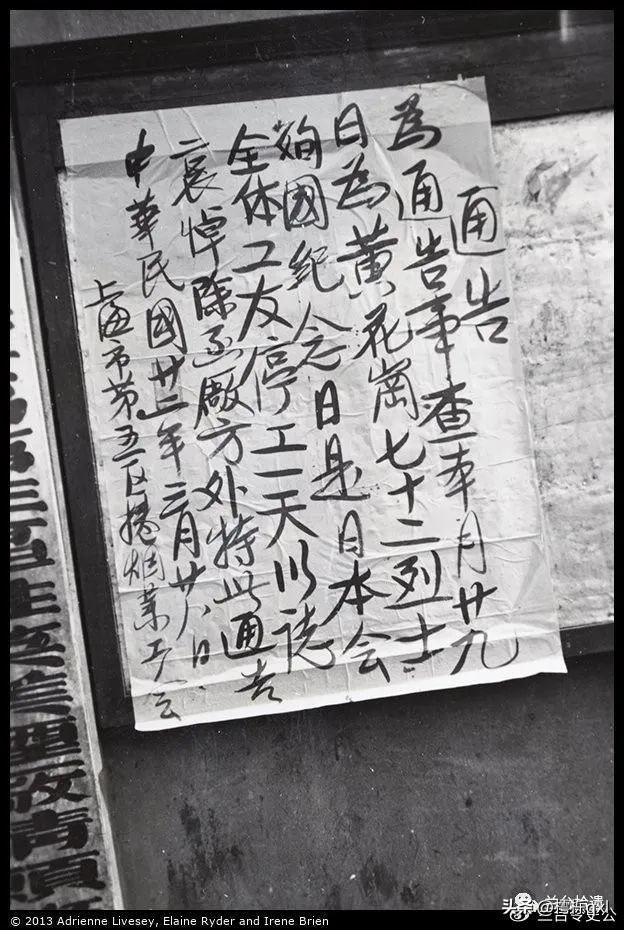 通告
為通告事查本月廿九
日為黃花崗七十二列士
殉國紀念日是日本会
全体工友停工一天以誌
哀悼除函廠方外特此通告
中華民國廿二年三月廿八日
上海市第五区捲烟業工会
© 2013 Adrienne Livesey, Elaine Ryder and Irene Brien
兰台令史公